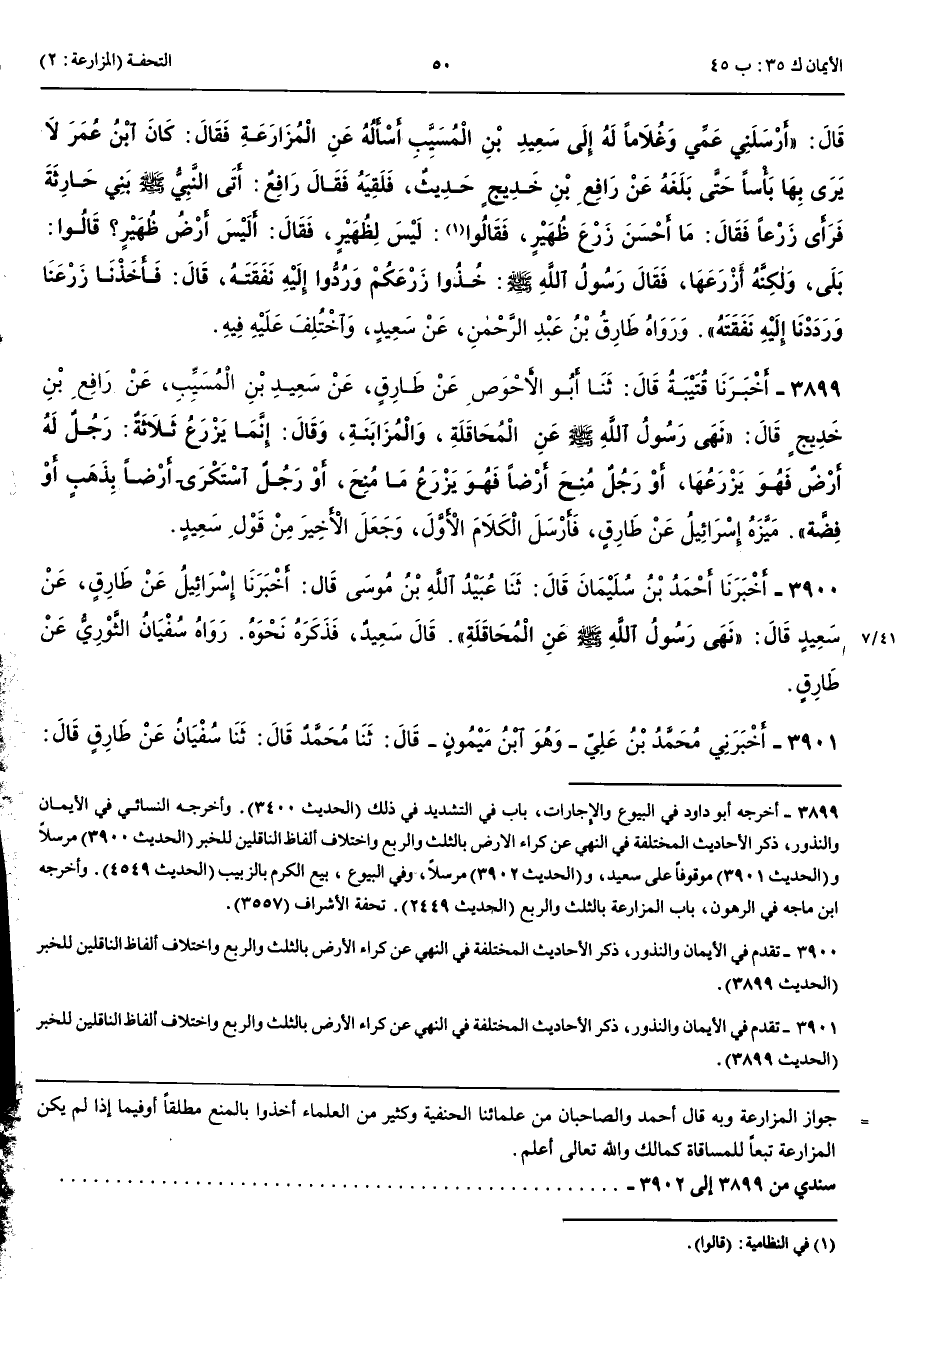 الأيمان ك ٣٥: ب ٤٥ ٥٠ التحفة (المزارعة: ٢)
قَالَ: «أَرْسَلَنِي عَمِّي وَغُلَاماً لَهُ إِلَى سَعِيدِ بْنِ الْمُسَيَّبِ أَسْأَلُهُ عَنِ الْمُزَارَعَةِ فَقَالَ: كَانَ ٱبْنُ عُمَرَ لَا
يَرَى بِهَا بَأْساً حَتَّى بَلَغَهُ عَنْ رَافِعِ بْنِ خَدِيجٍ حَدِيثٌ، فَلَقِيَهُ فَقَالَ رَافِعٌ: أَتَى النَّبِيُّ ﷺ بَنِي حَارِثَةَ
فَرَأَى زَرْعاً فَقَالَ: مَا أَحْسَنَ زَرْعَ ظُهَيْرٍ، فَقَالُوا(١): لَيْسَ لِظُهَيْرٍ، فَقَالَ: أَلَيْسَ أَرْضُ ظُهَيْرٍ؟ قَالُوا:
بَلَى، وَلٰكِنَّهُ أَزْرَعَهَا، فَقَالَ رَسُولُ ٱللَّهِ ﷺ: خُذُوا زَرْعَكُمْ وَرُدُّوا إِلَيْهِ نَفَقَتَهُ، قَالَ: فَأَخَذْنَا زَرْعَنَا
وَرَدَدْنَا إِلَيْهِ نَفَقَتَهُ». وَرَوَاهُ طَارِقُ بْنُ عَبْدِ الرَّحْمٰنِ، عَنْ سَعِيدٍ، وَٱخْتُلِفَ عَلَيْهِ فِيهِ.
٣٨٩٩ - أَخْبَرَنَا قُتَيْبَةُ قَالَ: ثَنَا أَبُو الْأَحْوَصِ عَنْ طَارِقٍ، عَنْ سَعِيدِ بْنِ الْمُسَيَّبِ، عَنْ رَافِعِ بْنِ
خَدِيجٍ قَالَ: «نَهَى رَسُولُ ٱللَّهِ ﷺ عَنِ الْمُحَاقَلَةِ، وَالْمُزَابَنَةِ، وَقَالَ: إِنَّمَا يَزْرَعُ ثَلَاثَةٌ: رَجُلٌ لَهُ
أَرْضٌ فَهُوَ يَزْرَعُهَا، أَوْ رَجُلٌ مُنِحَ أَرْضاً فَهُوَ يَزْرَعُ مَا مُنِحَ، أَوْ رَجُلٌ ٱسْتَكْرَى أَرْضاً بِذَهَبٍ أَوْ
فِضَّة». مَيَّزَهُ إِسْرَائِيلُ عَنْ طَارِقٍ، فَأَرْسَلَ الْكَلَامَ الْأَوَّلَ، وَجَعَلَ الْأَخِيرَ مِنْ قَوْلِ سَعِيدٍ.
٣٩٠٠ - أَخْبَرَنَا أَحْمَدُ بْنُ سُلَيْمَانَ قَالَ: ثَنَا عُبَيْدُ ٱللَّهِ بْنُ مُوسَى قَالَ: أَخْبَرَنَا إِسْرَائِيلُ عَنْ طَارِقٍ، عَنْ
سَعِيدٍ قَالَ: «نَهَى رَسُولُ ٱللَّهِ ﷺ عَنِ الْمُحَاقَلَةِ». قَالَ سَعِيدٌ، فَذَكَرَهُ نَحْوَهُ. رَوَاهُ سُفْيَانُ الثَّوْرِيُّ عَنْ ٧/٤١
طَارِقٍ.
٣٩٠١ - أَخْبَرَنِي مُحَمَّدُ بْنُ عَلِيٍّ - وَهُوَ ٱبْنُ مَيْمُونٍ - قَالَ: ثَنَا مُحَمَّدٌ قَالَ: ثَنَا سُفْيَانُ عَنْ طَارِقٍ قَالَ:
٣٨٩٩ - أخرجه أبو داود في البيوع والإجارات، باب في التشديد في ذلك (الحديث ٣٤٠٠). وأخرجه النسائي في الأيمان
والنذور، ذكر الأحاديث المختلفة في النهي عن كراء الأرض بالثلث والربع واختلاف ألفاظ الناقلين للخبر (الحديث ٣٩٠٠) مرسلاً
و(الحديث ٣٩٠١) موقوفاً على سعيد، و(الحديث ٣٩٠٢) مرسلاً، وفي البيوع، بيع الكرم بالزبيب (الحديث ٤٥٤٩). وأخرجه
ابن ماجه في الرهون، باب المزارعة بالثلث والربع (الحديث ٢٤٤٩). تحفة الأشراف (٣٥٥٧).
٣٩٠٠ - تقدم في الأيمان والنذور، ذكر الأحاديث المختلفة في النهي عن كراء الأرض بالثلث والربع واختلاف ألفاظ الناقلين للخبر
(الحديث ٣٨٩٩).
٣٩٠١ - تقدم في الأيمان والنذور، ذكر الأحاديث المختلفة في النهي عن كراء الأرض بالثلث والربع واختلاف ألفاظ الناقلين للخبر
(الحديث ٣٨٩٩).
= جواز المزارعة وبه قال أحمد والصاحبان من علمائنا الحنفية وكثير من العلماء أخذوا بالمنع مطلقاً أوفيما إذا لم يكن
المزارعة تبعاً للمساقاة كمالك والله تعالى أعلم.
سندي من ٣٨٩٩ إلى ٣٩٠٢ - ..........................................
(١) في النظامية: (قالوا).